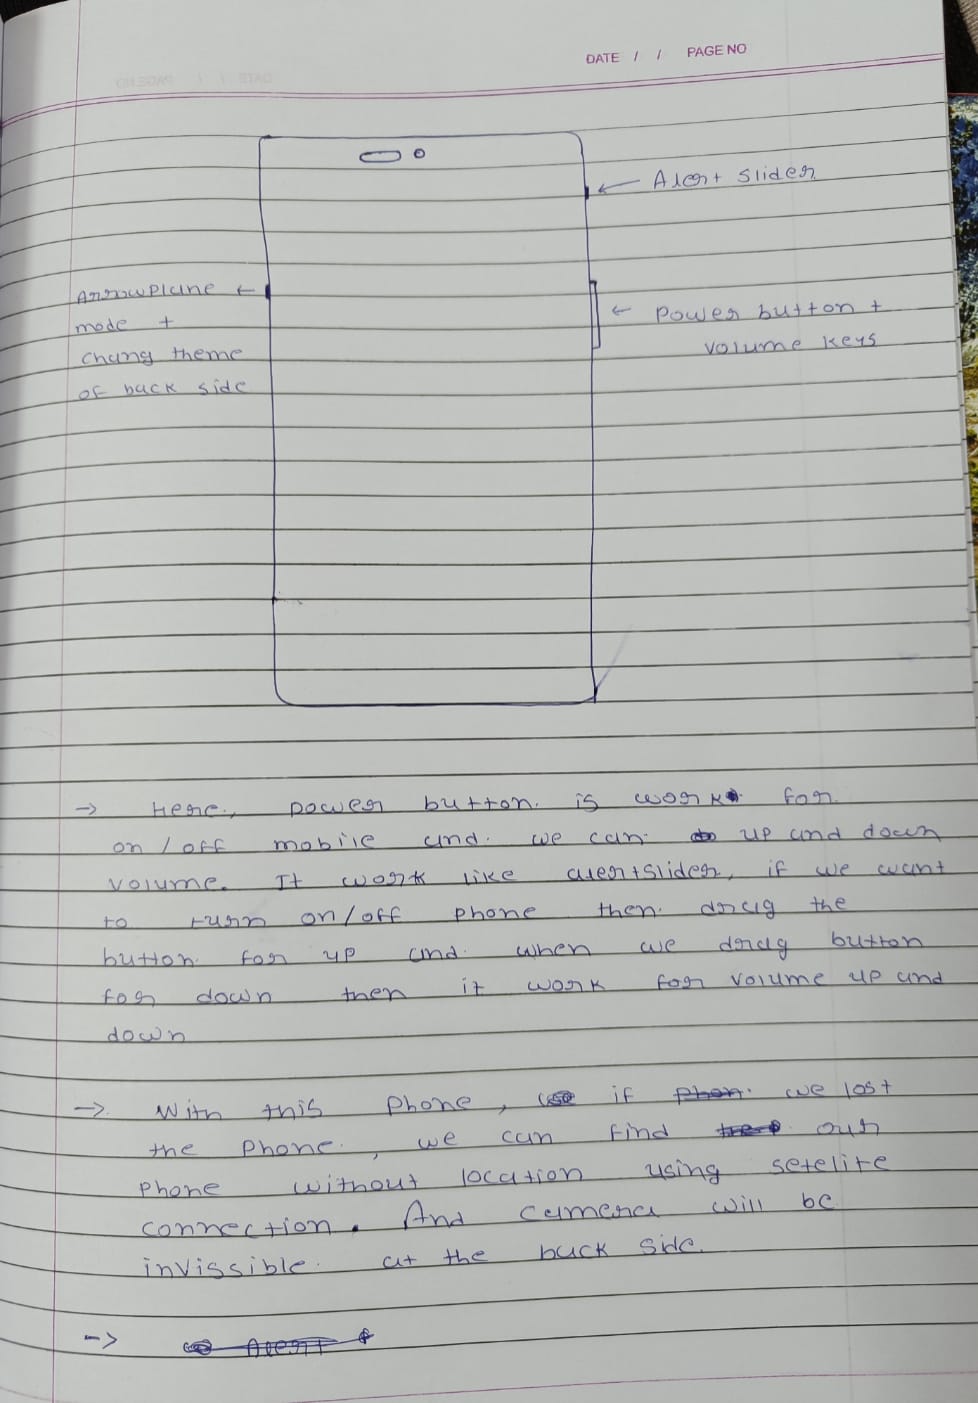 DATE / / PAGE NO
Alert slider
Arrowplane
mode +
chang theme
of back side
Power button +
volume keys
→ Here, power button is work for
on / off mobile and we can up and down
volume. It work like alertslider, if we want
to turn on/off phone then drag the
button for up and when we drag button
for down then it work for volume up and
down
→ With this phone, if we lost
the phone, we can find our
phone without location using setelite
connection. And camera will be
invissible at the back side.
→